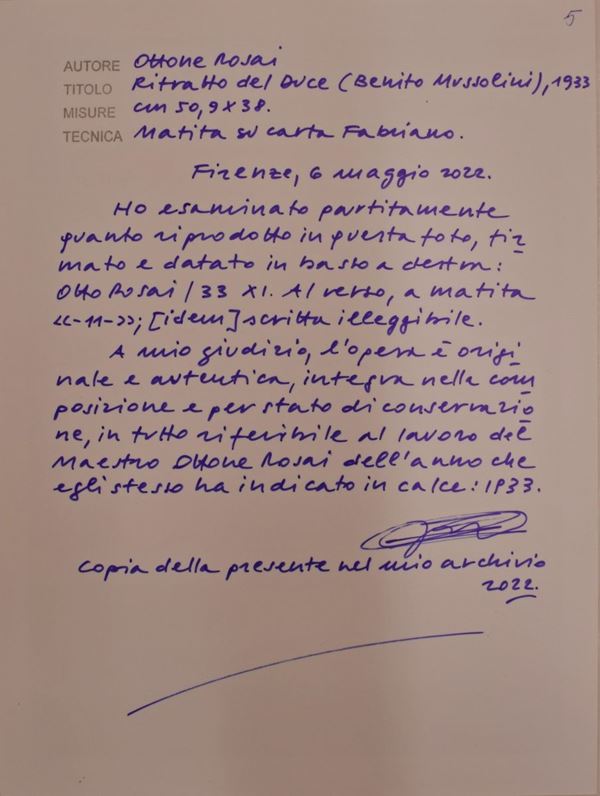 5
AUTORE Ottone Rosai
TITOLO Ritratto del Duce (Benito Mussolini), 1933
MISURE cm 50,9 x 38.
TECNICA Matita su carta Fabriano.
Firenze, 6 maggio 2022.
Ho esaminato partitamente
quanto riprodotto in questa foto, fir
mato e datato in basso a destra:
Otto Rosai / 33 XI. Al verso, a matita
<<-11->>; [idem] scritta illeggibile.
A mio giudizio, l'opera è origi
nale e autentica, integra nella com
posizione e per stato di conservazio
ne, in tutto riferibile al lavoro del
Maestro Ottone Rosai dell'anno che
egli stesso ha indicato in calce: 1933.
Copia della presente nel mio archivio
2022.